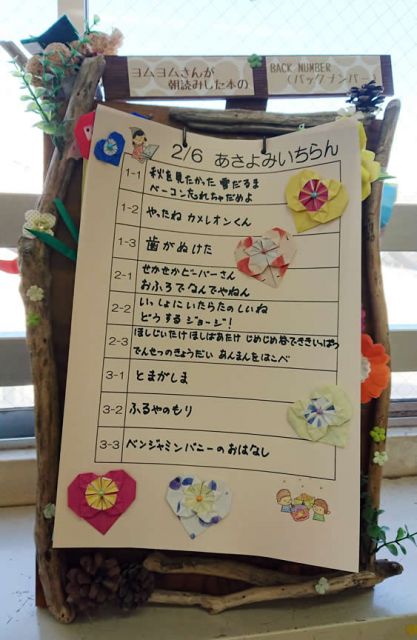 ヨムヨムさんが
朝読みした本の
BACK NUMBER
(バックナンバー)
2/6 あさよみいちらん
1-1 秋を見たかった 雪だるま
ベーコン忘れちゃだめよ
1-2 やったね カメレオンくん
1-3 歯がぬけた
2-1 せかせかビーバーさん
おふろでなんでやねん
2-2 いっしょにいたらたのしいね
どうする ジョージ!
2-3 ほしじいたけ ほしばあたけ じめじめ谷でききいっぱつ
でんせつのきょうだい あんまんをはこべ
3-1 とまがしま
3-2 ふるやのもり
3-3 ベンジャミンバニーのおはなし